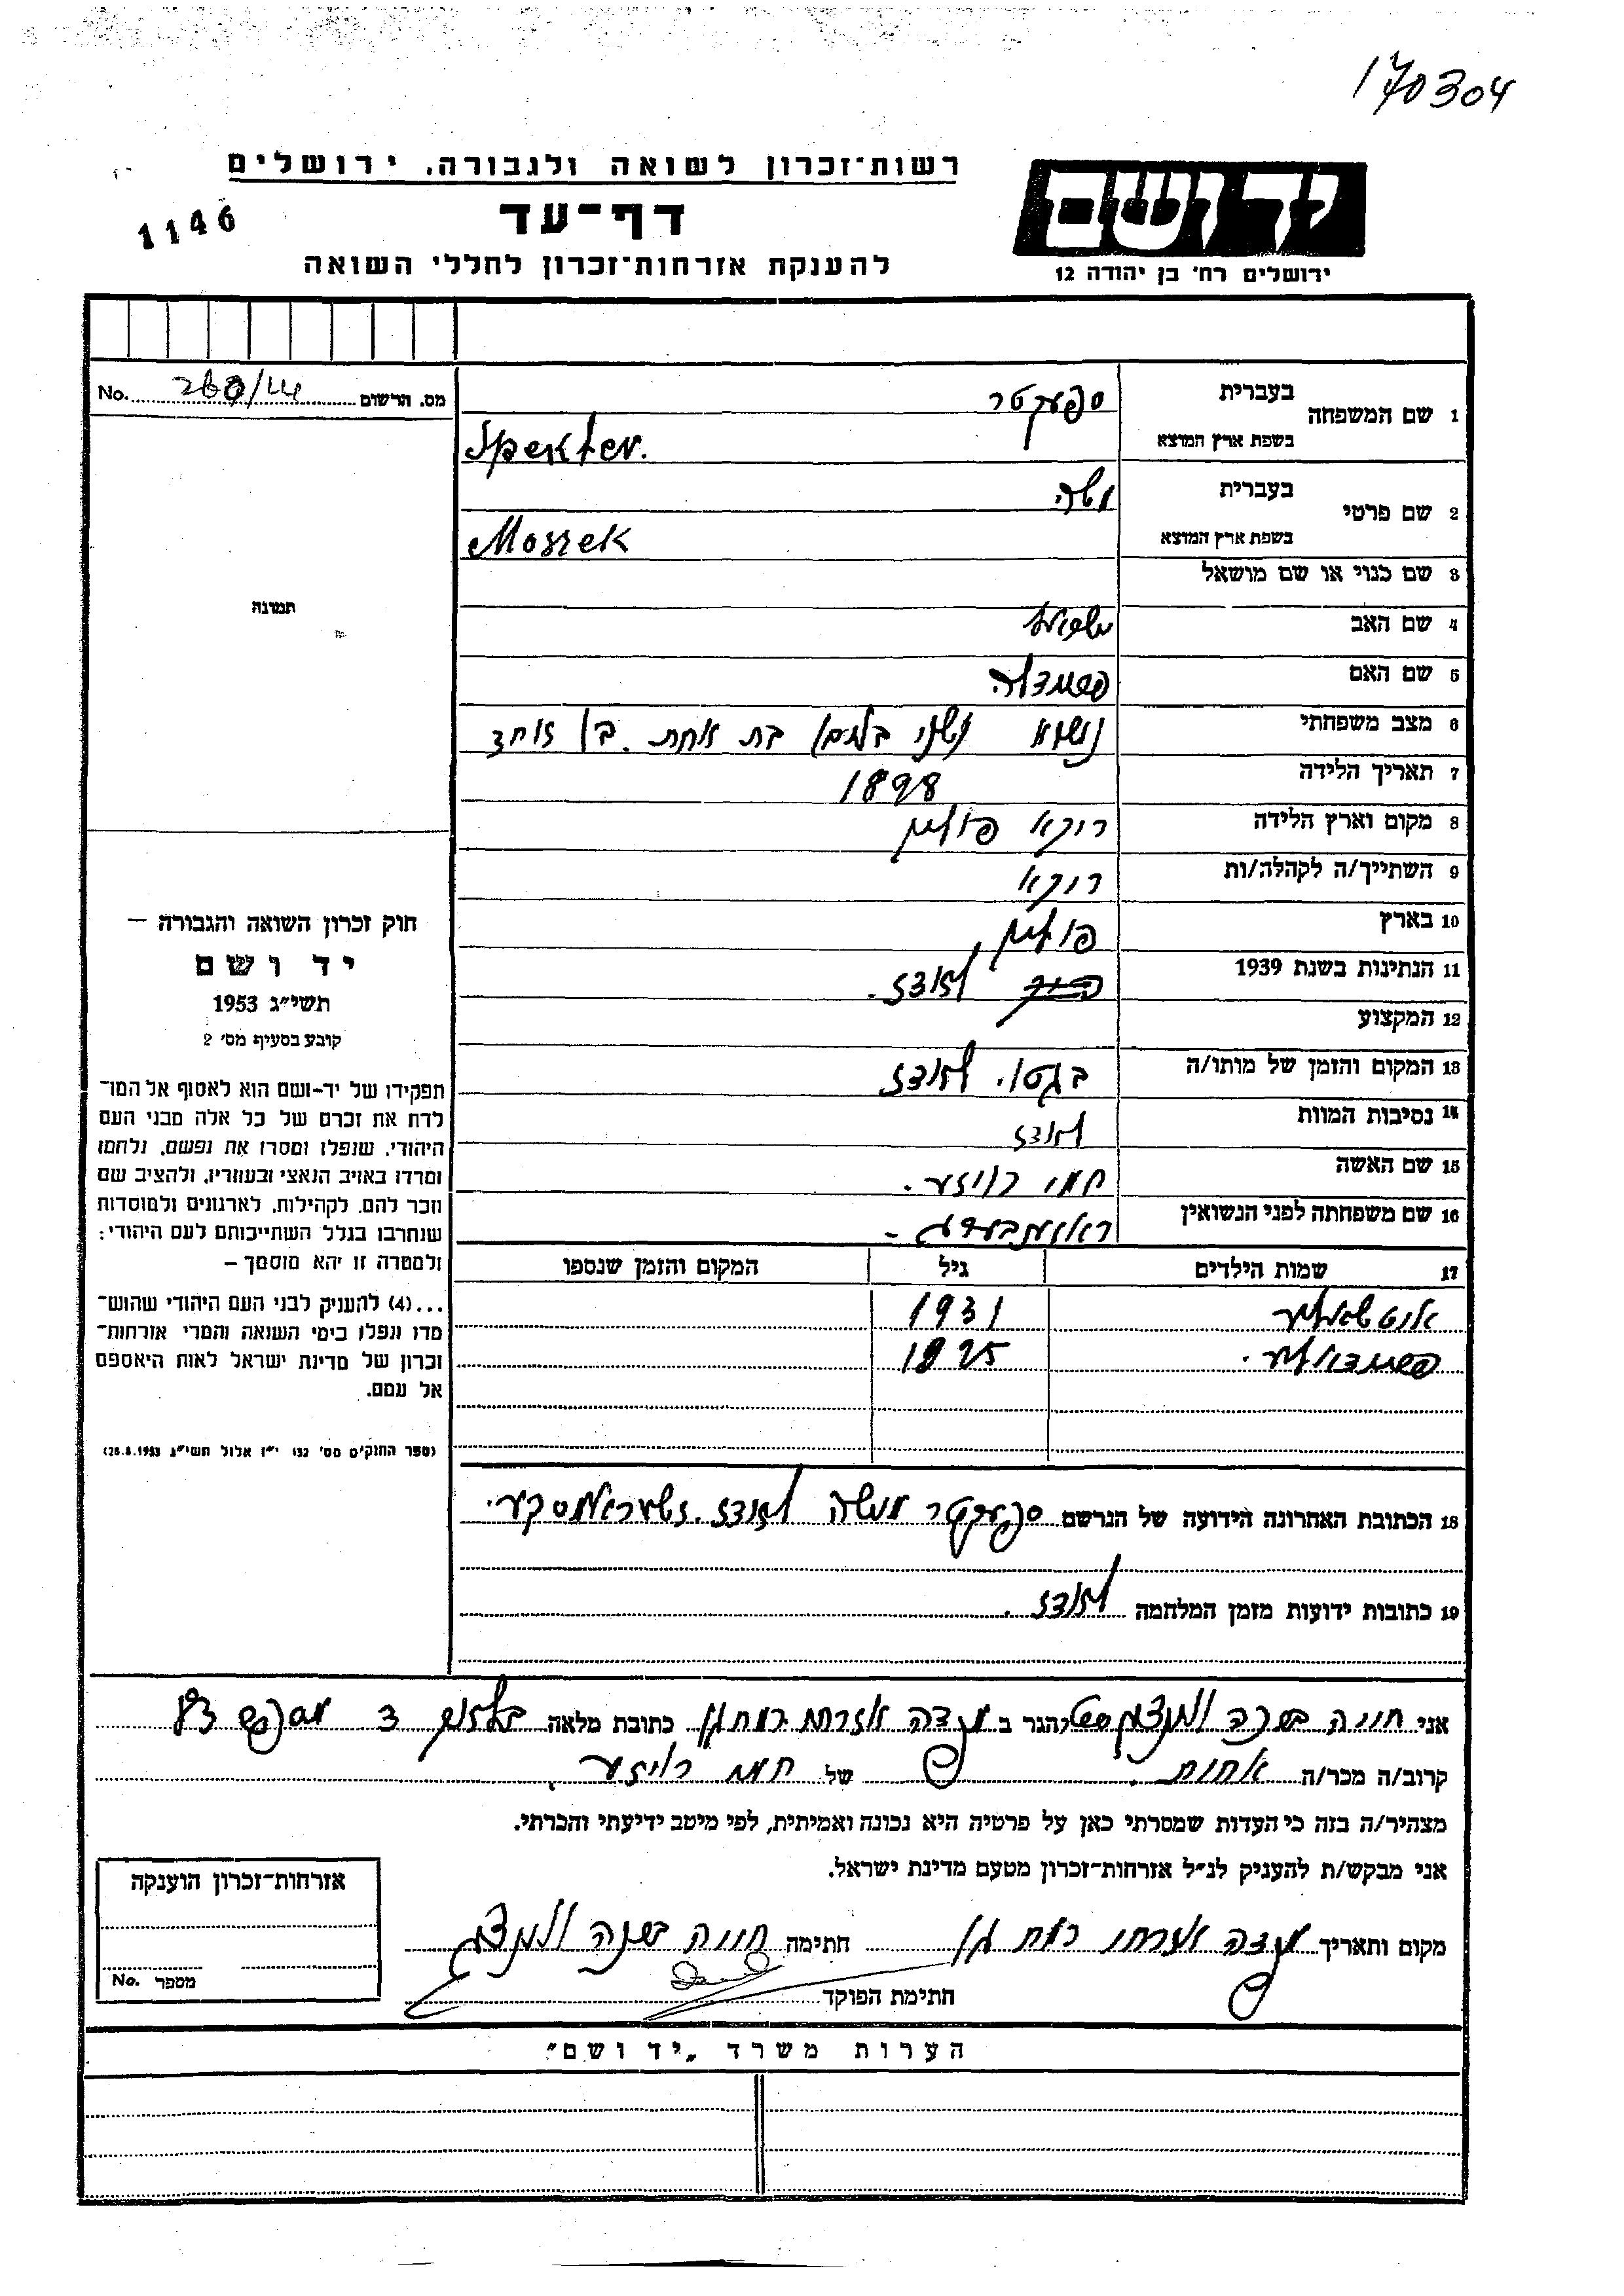 170304
רשות-זכרון לשואה ולגבורה, ירושלים
יד ושם
דף-עד
1146
להענקת אזרחות-זכרון לחללי השואה
ירושלים רח' בן יהודה 12
מס. הרשום No.
1 שם המשפחה בעברית ספעקטר
בשפת ארץ המוצא Spekter.
2 שם פרטי בעברית משה
בשפת ארץ המוצא Moszek
3 שם כנוי או שם מושאל
4 שם האב
5 שם האם
6 מצב משפחתי נשוא ושני בנים בת אחת. בן אחד
7 תאריך הלידה 1898
8 מקום וארץ הלידה רוקא פולין
9 השתייך/ה לקהלה/ות רוקא
10 בארץ פולין
11 הנתינות בשנת 1939 לאדז.
12 המקצוע
13 המקום והזמן של מותו/ה בגטו. לאדז
14 נסיבות המוות לאדז
15 שם האשה חמי רויזע.
16 שם משפחתה לפני הנשואין
17 שמות הילדים גיל המקום והזמן שנספו
1931
1925
18 הכתובת האחרונה הידועה של הנרשם ספעקטר משה לאדז.
19 כתובות ידועות מזמן המלחמה לאדז.
תמונה
חוק זכרון השואה והגבורה —
יד ושם
תשי"ג 1953
קובע בסעיף מס' 2
תפקידו של יד-ושם הוא לאסוף אל המו-
לדת את זכרם של כל אלה מבני העם
היהודי, שנפלו ומסרו את נפשם, נלחמו
ומרדו באויב הנאצי ובעוזריו, ולהציב שם
וזכר להם, לקהילות, לארגונים ולמוסדות
שנחרבו בגלל השתייכותם לעם היהודי;
ולמטרה זו יהא מוסמך —
...(4) להעניק לבני העם היהודי שהוש-
מדו ונפלו בימי השואה והמרי אזרחות-
זכרון של מדינת ישראל לאות היאספם
אל עמם.
(ספר החוקים מס' 132 י"ז אלול תשי"ג 28.8.1953)
אני חוויה הגר ב כתובת מלאה
קרוב/ה מכר/ה אחות של חמי רויזע.
מצהיר/ה בזה כי העדות שמסרתי כאן על פרטיה היא נכונה ואמיתית, לפי מיטב ידיעתי והכרתי.
אני מבקש/ת להעניק לנ"ל אזרחות-זכרון מטעם מדינת ישראל.
מקום ותאריך רמת גן חתימה חוויה
חתימת הפוקד
אזרחות-זכרון הוענקה
מספר No.
הערות משרד „יד ושם"